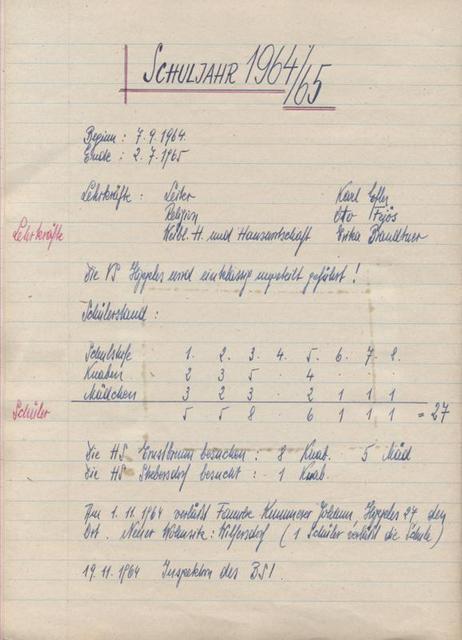 SCHULJAHR 1964/65
Beginn : 7.9.1964.
Ende : 2.7.1965
Lehrkräfte : Leiter Karl
Religion Otto Fejös
Lehrkräfte Weibl. H. und Hauswirtschaft Erika Brandtner
Die VS Hipples wird einklassig ungeteilt geführt !
Schülerstand :
Schulstufe 1. 2. 3. 4. 5. 6. 7. 8.
Knaben 2 3 5 . 4 . . .
Mädchen 3 2 3 . 2 1 1 1
Schüler 5 5 8 6 1 1 1 = 27
Die HS Ernstbrunn besuchen : 8 Knab. 5 Mäd
Die HS besucht : 1 Knab.
Am 1.11.1964 verläßt Familie Johann, Hipples 27 den
Ort. Neuer Wohnsitz : Wilfersdorf ( 1 Schüler verläßt die Schule)
19.11.1964 Inspektion des BSI.